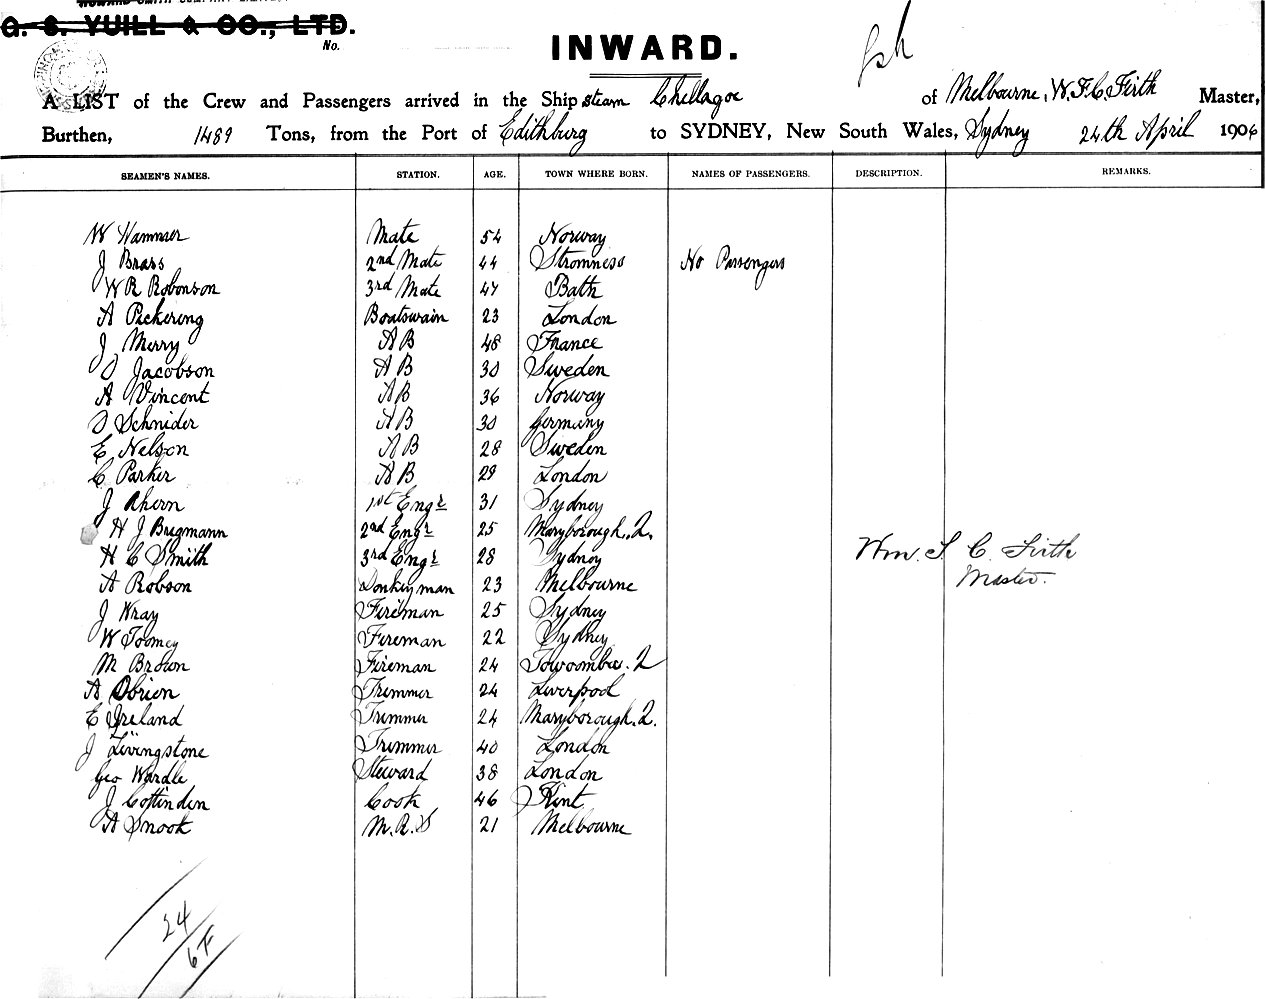 HOWARD SMITH COMPANY LIMITED
G. S. YUILL & CO., LTD.
No.
INWARD.
A LIST of the Crew and Passengers arrived in the Ship steam Chillagoe of Melbourne, W. F. C. Firth Master,
Burthen, 1489 Tons, from the Port of Edithburg to SYDNEY, New South Wales, Sydney 24th April 1906
SEAMEN'S NAMES. STATION. AGE. TOWN WHERE BORN. NAMES OF PASSENGERS. DESCRIPTION. REMARKS.
W Hammer Mate 54 Norway
J Brass 2nd Mate 44 Stromness No Passengers
W R Robonson 3rd Mate 47 Bath
A Pickering Boatswain 23 London
J Merry A B 48 France
Jacobson A B 30 Sweden
A Vincent A B 36 Norway
Schnider A B 30 Germany
E Nelson A B 28 Sweden
C Parker A B 29 London
J Ahern 1st Engr 31 Sydney
H J Brigmann 2nd Engr 25 Maryborough. Q.
H C Smith 3rd Engr 28 Sydney
A Robson Donkeyman 23 Melbourne
J Wray Fireman 25 Sydney
W Toomey Fireman 22 Sydney
M Brown Fireman 24 Towoomba. Q
A Obrien Trimmer 24 Liverpool
E Ireland Trimmer 24 Maryborough. Q.
J Livingstone Trimmer 40 London
Geo Wardle Steward 38 London
J Cottinden Cook 46 Kent
A Snook M.R.S 21 Melbourne
Wm. F. C. Firth
Master.
24
6F